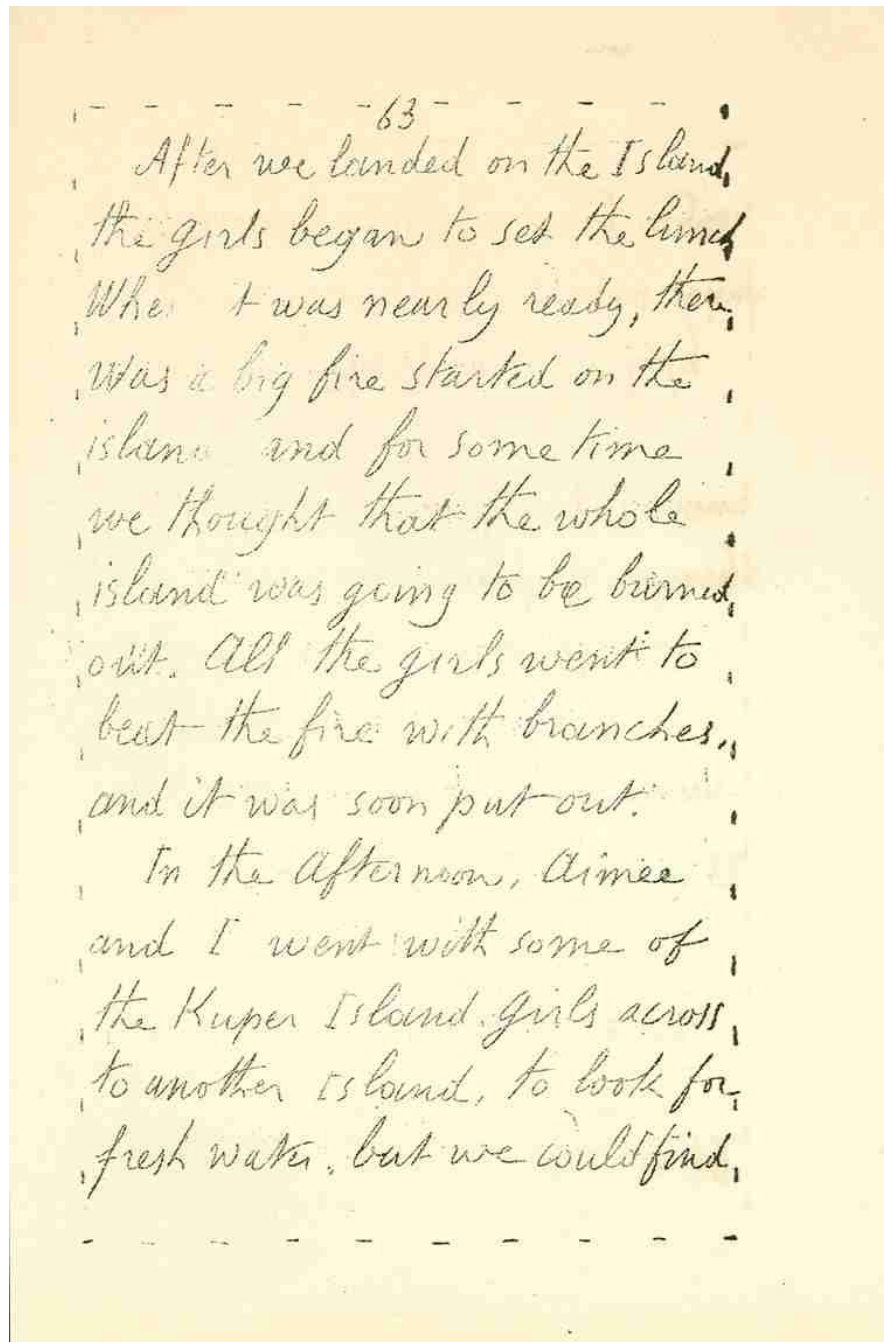 63
After we landed on the Island,
the girls began to set the lunch
Whe t was nearly ready, there
was a big fire started on the
island and for some time
we thought that the whole
island was going to be burned
out. All the girls went to
beat the fire with branches,
and it was soon put out.
In the Afternoon, Aimee
and I went with some of
the Kuper Island girls across
to another island, to look for
fresh water, but we could find